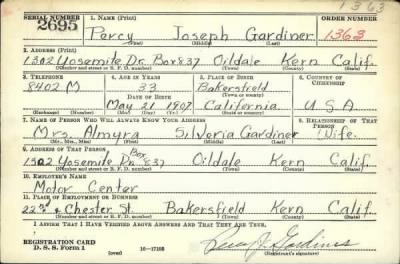 1363
SERIAL NUMBER 1. NAME (Print) ORDER NUMBER
2695 Percy Joseph Gardiner 1363
(First) (Middle) (Last)
2. ADDRESS (Print)
1302 Yosemite Dr. Box 837 Oildale Kern Calif.
(Number and street or R. F. D. number) (Town) (County) (State)
3. TELEPHONE 4. AGE IN YEARS 5. PLACE OF BIRTH 6. COUNTRY OF CITIZENSHIP
8402 M 33 Bakersfield
DATE OF BIRTH (Town or county)
May 21 1907 California U S A
(Exchange) (No.) (Mo.) (Day) (Yr.) (State or country)
7. NAME OF PERSON WHO WILL ALWAYS KNOW YOUR ADDRESS 8. RELATIONSHIP OF THAT PERSON
Mrs. Almyra Silveria Gardiner Wife.
(Mr., Mrs., Miss) (First) (Middle) (Last)
9. ADDRESS OF THAT PERSON
1302 Yosemite Dr. Box 837 Oildale Kern Calif.
(Number and street or R. F. D. number) (Town) (County) (State)
10. EMPLOYER'S NAME
Motor Center
11. PLACE OF EMPLOYMENT OR BUSINESS
22nd & Chester St. Bakersfield Kern Calif.
(Number and street or R. F. D. number) (Town) (County) (State)
I AFFIRM THAT I HAVE VERIFIED ABOVE ANSWERS AND THAT THEY ARE TRUE.
REGISTRATION CARD
D. S. S. Form 1 (over) 16—17105 Percy J. Gardiner